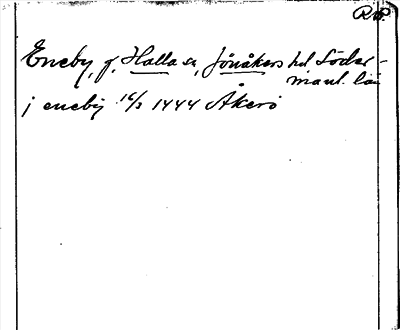 Rep.
Eneby, f. Halla sn, Jönåkers hd Söder-
manl. län
j eneby 16/3 1444 Åkerö